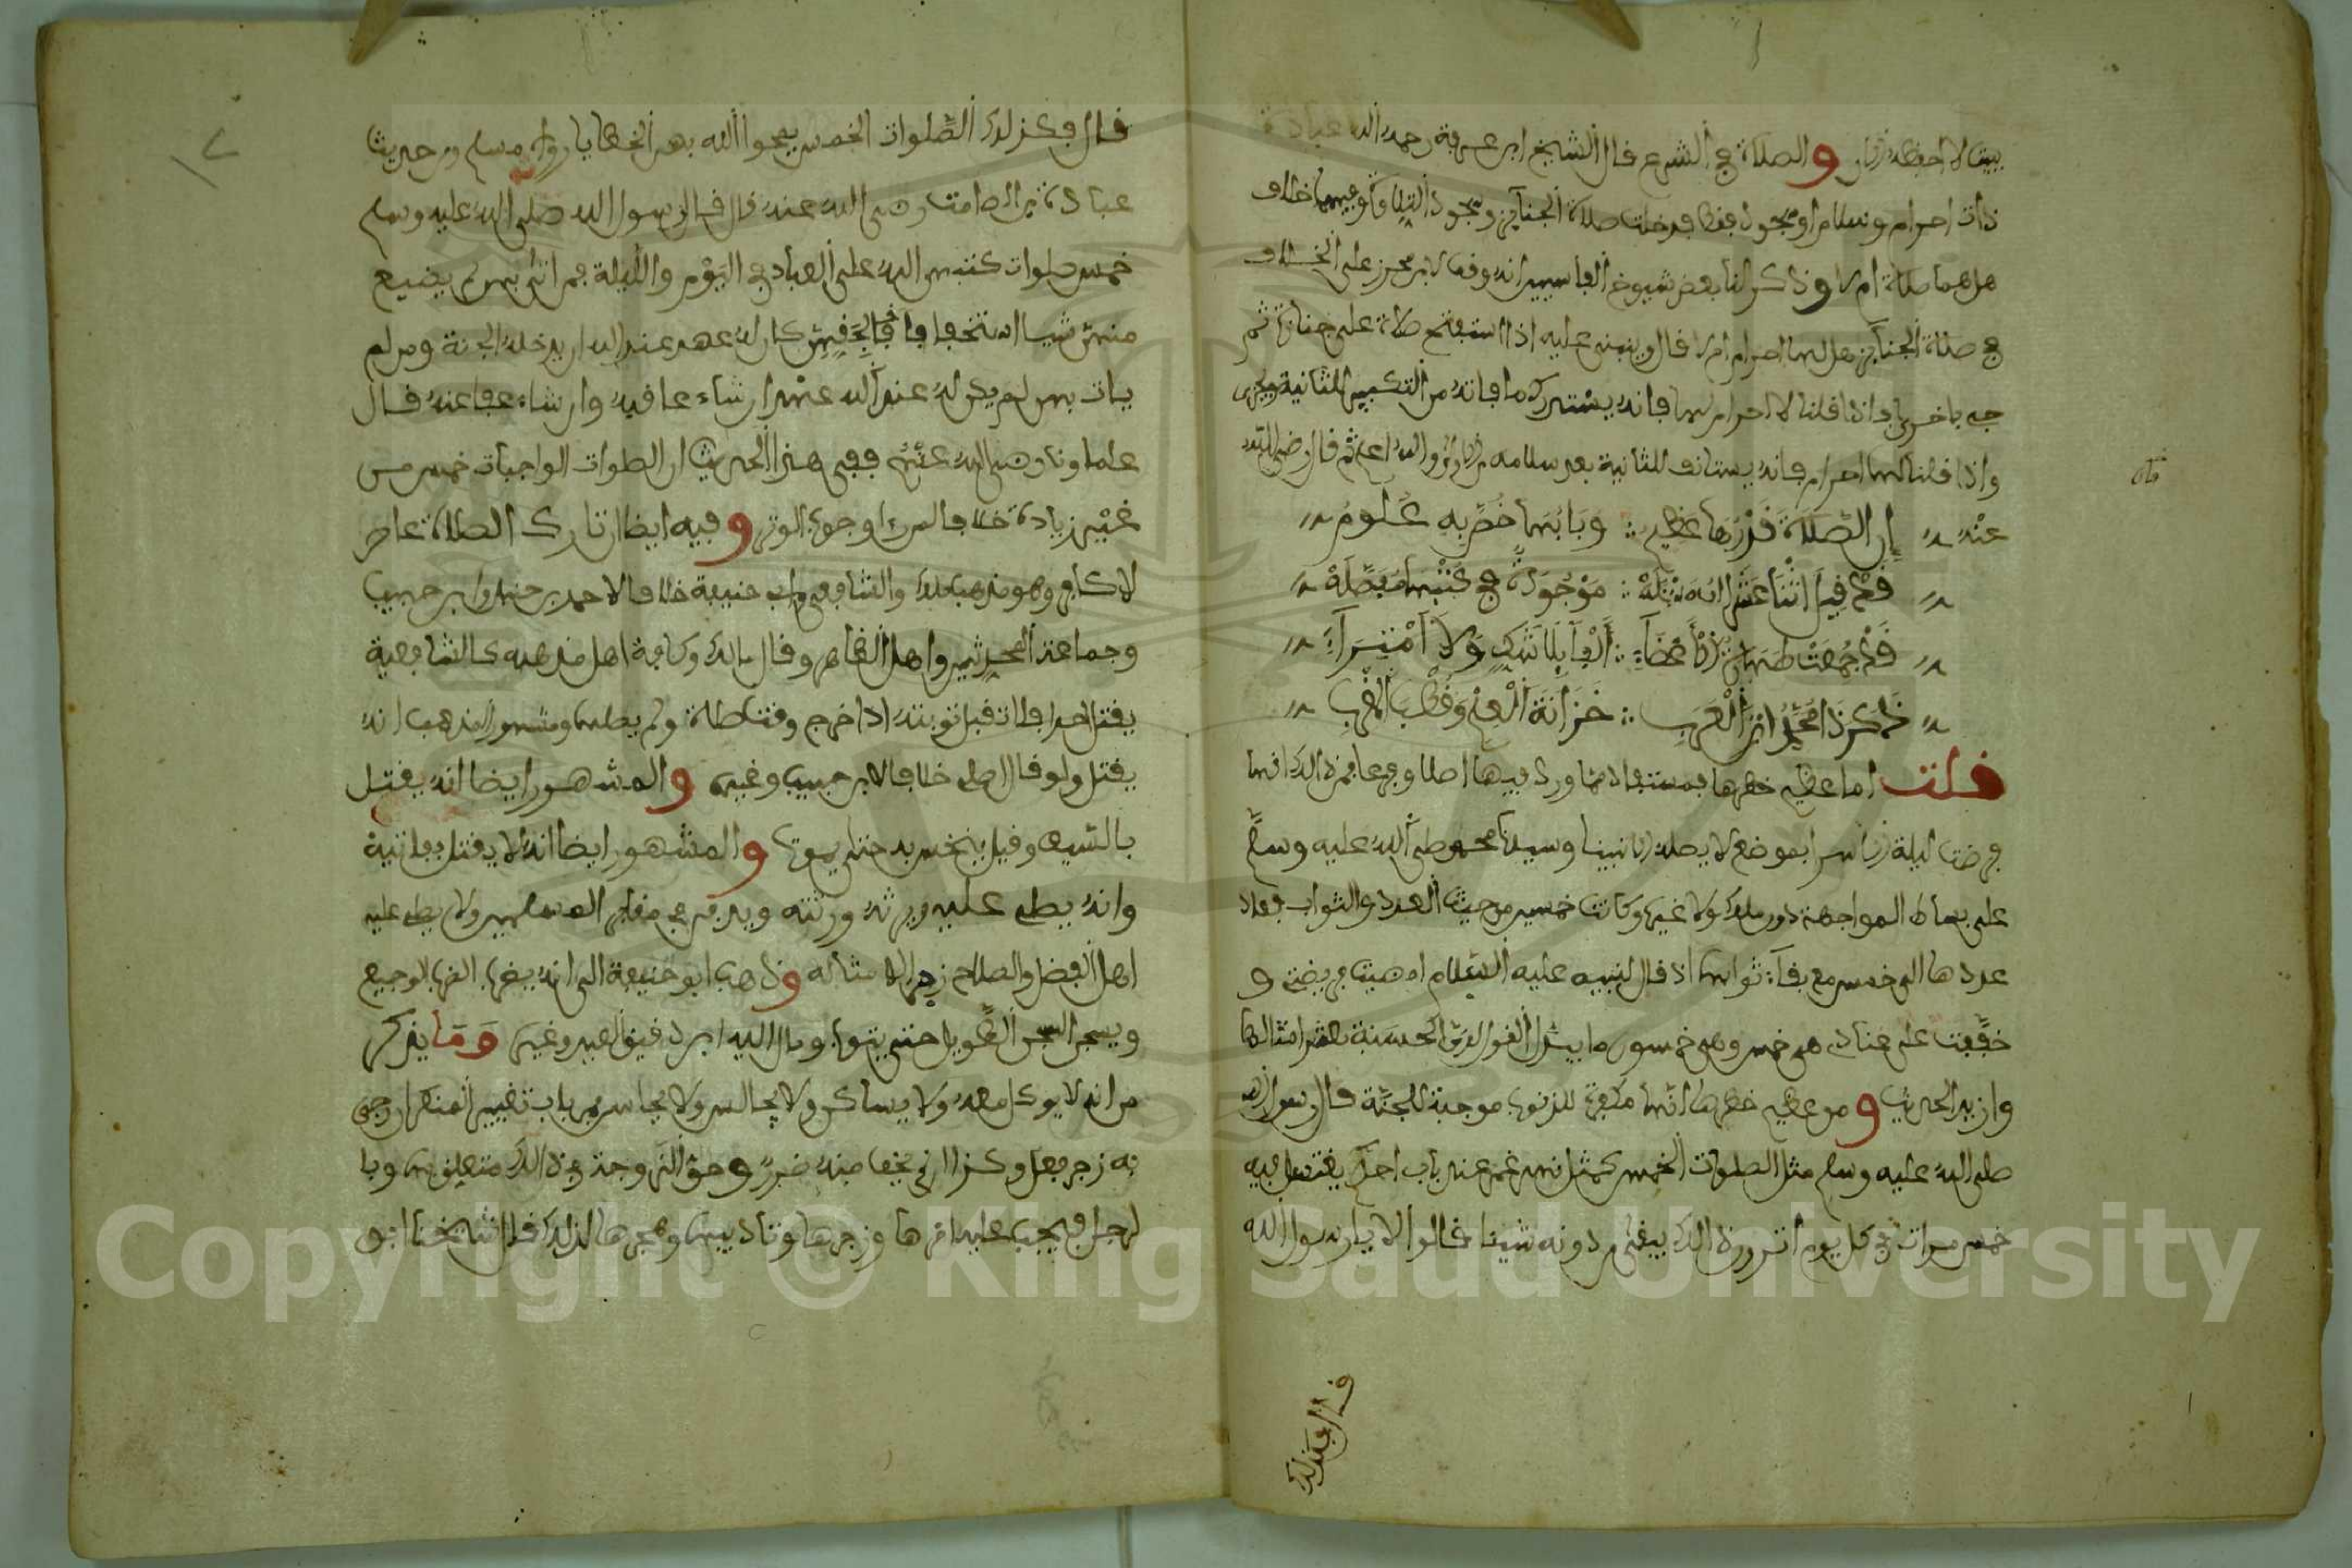 بيت لا احفظه الان والصلاة في الشرع قال الشيخ ابن عرفة رحمه الله عبادة
ذات احرام وسلام او سجود فقط فدخلت صلاة الجنايز وسجود التلاوة وفيهما خلاف
هل هما صلاة ام لا وذكر لنا بعض شيوخ الفاسيين انه وقف لابن محرز على الخلاف
في صلاة الجنايز هل لها احرام ام لا قال وينبني عليه اذا استفتح صلاة على جنازة ثم
جيء باخرى فاذا قلنا لا احرام لها فانه يستدرك ما فاته من التكبير للثانية ويجزى
واذا قلنا لها احرام فانه يستانف للثانية بعد سلامه من الاولى والله اعلم ثم قال رضي الله
عنه إن الصلاة قدرها عظيم وبابها خص به علوم
قل فيه اثنا عشر الف مسئلة موجودة في كتبها مفصلة
قد جمعت طهارة الاعضاء ألفا بلا شك ولا امتراء
ذكر ذا محمد ابن العربي خزانة العلم وقطب المغرب
قلت اما عظيم خطرها فمستفاد مما ورد فيها اصلا وفرعا فمن ذلك انها
فرضت ليلة الاسرا بموضع لا يصله الا نبينا وسيدنا محمد صلى الله عليه وسلم
على بساط المواجهة دون ملك ولا غيره وكانت خمسين من حيث العدد والثواب فعاد
عددها الى خمس مع بقاء ثوابها اذ قال لنبيه عليه السلام امضيت فريضتي و
خففت على عبادي هي خمس وهي خمسون ما يبدل القول لدي الحسنة بعشر امثالها
وازيد الحديث ومن عظيم خطرها انها مكفرة للذنوب موجبة للجنة قال رسول الله
صلى الله عليه وسلم مثل الصلوات الخمس كمثل نهر غمر عند باب احدكم يغتسل فيه
خمس مرات في كل يوم اترون ذلك يبقي من درنه شيئا قالوا لا يا رسول الله
قال فكذلك
قال فكذلك الصلوات الخمس يمحوا الله بهن الخطايا رواه مسلم ومن حديث
عبادة بن الصامت رضي الله عنه قال قال رسول الله صلى الله عليه وسلم
خمس صلوات كتبهن الله على العباد في اليوم والليلة فمن اتى بهن لم يضيع
منهن شيا استخفافا بحقهن كان له عهد عند الله ان يدخله الجنة ومن لم
يات بهن لم يكن له عند الله عهد ان شاء عاقبه وان شاء عفا عنه قال
علماونا رضي الله عنهم ففي هذا الحديث ان الصلوات الواجبات خمس من
غير زيادة خلافا لمن اوجب الوتر وفيه ايضا ان تارك الصلاة عاص
لا كافر وهو مذهب ملك والشافعي وابي حنيفة خلافا لاحمد بن حنبل وابن حبيب
وجماعة المحدثين واهل الظاهر وقال مالك وكافة اهل مذهبه كالشافعية
يقتل حدا فلا تقبل توبته اذا خرج وقت صلاة ولم يصلها ومشهور المذهب انه
يقتل ولو قال اصلي خلافا لابن حبيب وغيره والمشهور ايضا انه يقتل
بالسيف وقيل ينخس به حتى يموت والمشهور ايضا انه لا يقتل بفائتة
وانه يصلى عليه ويرثه ورثته ويدفن في مقابر المسلمين ولا يصلي عليه
اهل الفضل والصلاح زجرا لامثاله وذهب ابو حنيفة الى انه يضرب الضرب الوجيع
ويسجن السجن الطويل حتى يتوب ومال اليه ابن دقيق العيد وغيره وما يذكر
من انه لا يوكل معه ولا يساكن ولا يجالس ولا يجاس من باب تغيير المنكر ان رجي
به زجر فعل وكذا ان لم يخف منه ضرر وحق الزوجة في ذلك متعلق بها وبا
لرجل فيجب عليه امرها وزجرها وتاديبها وهجرها لذلك قال شيخنا ابو